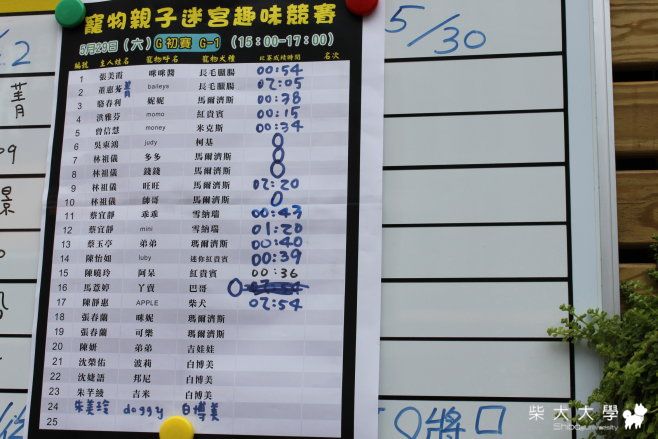 寵物親子迷宮趣味競賽
5月29日（六）G初賽 G-1 （15:00-17:00）
編號 主人姓名 寵物呼名 寵物犬種 比賽成績時間 名次
1 張美霞 咪咪醬 長毛臘腸 00:54
2 董惠菁 baileys 長毛臘腸 02:05
3 駱春利 妮妮 馬爾濟斯 00:38
4 洪雅芬 momo 紅貴賓 00:15
5 曾信慧 money 米克斯 00:34
6 吳東鴻 judy 柯基 0
7 林祖儀 多多 馬爾濟斯 0
8 林祖儀 錢錢 馬爾濟斯 0
9 林祖儀 旺旺 馬爾濟斯 02:20
10 林祖儀 帥哥 馬爾濟斯 0
11 蔡宜靜 乖乖 雪納瑞 00:43
12 蔡宜靜 mini 雪納瑞 01:20
13 蔡玉亭 弟弟 瑪爾濟斯 00:40
14 陳怡如 luby 迷你紅貴賓 00:39
15 陳曉玲 阿呆 紅貴賓 00:36
16 馬薏婷 丫賣 巴哥 0
17 陳靜惠 APPLE 柴犬 02:54
18 張春蘭 咪妮 瑪爾濟斯
19 張春蘭 可樂 瑪爾濟斯
20 陳妍 弟弟 吉娃娃
21 沈榮佑 波莉 白博美
22 沈婕語 邦尼 白博美
23 朱芊綾 吉米 白博美
24 朱美玲 doggy 白博美
25
5/30
柴犬大學
Shiba university